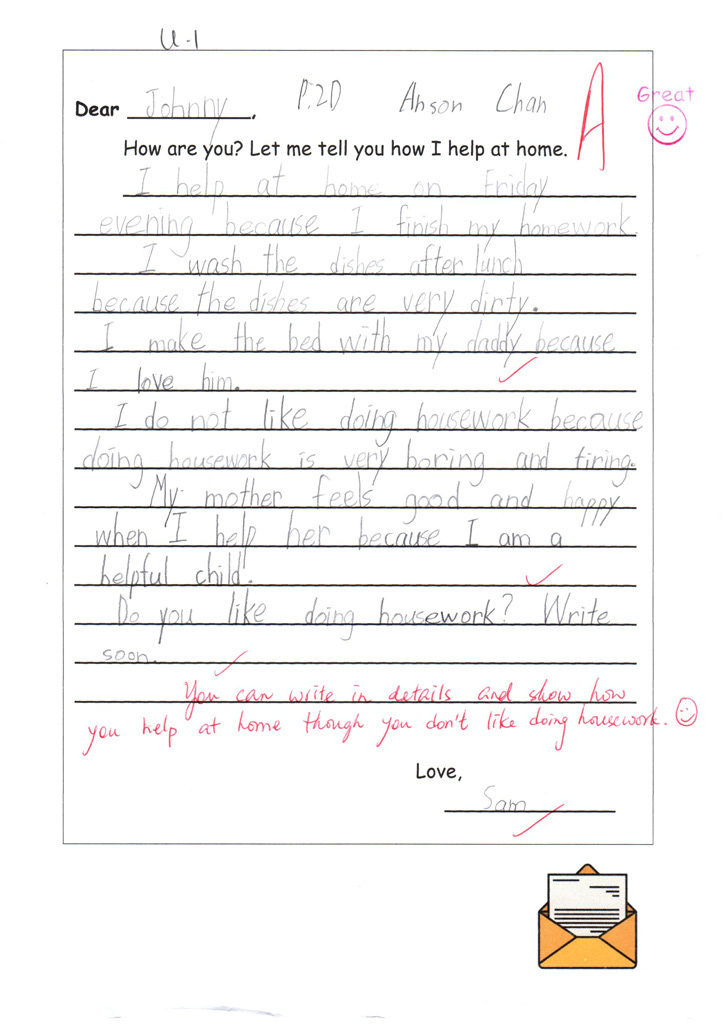 U-1
Dear Johnny, P.2D Anson Chan A Great
How are you? Let me tell you how I help at home.
I help at home on Friday
evening because I finish my homework.
I wash the dishes after lunch
because the dishes are very dirty.
I make the bed with my daddy because
I love him.
I do not like doing housework because
doing housework is very boring and tiring.
My mother feels good and happy
when I help her because I am a
helpful child.
Do you like doing housework? Write
soon.
You can write in details and show how
you help at home though you don't like doing housework.
Love,
Sam